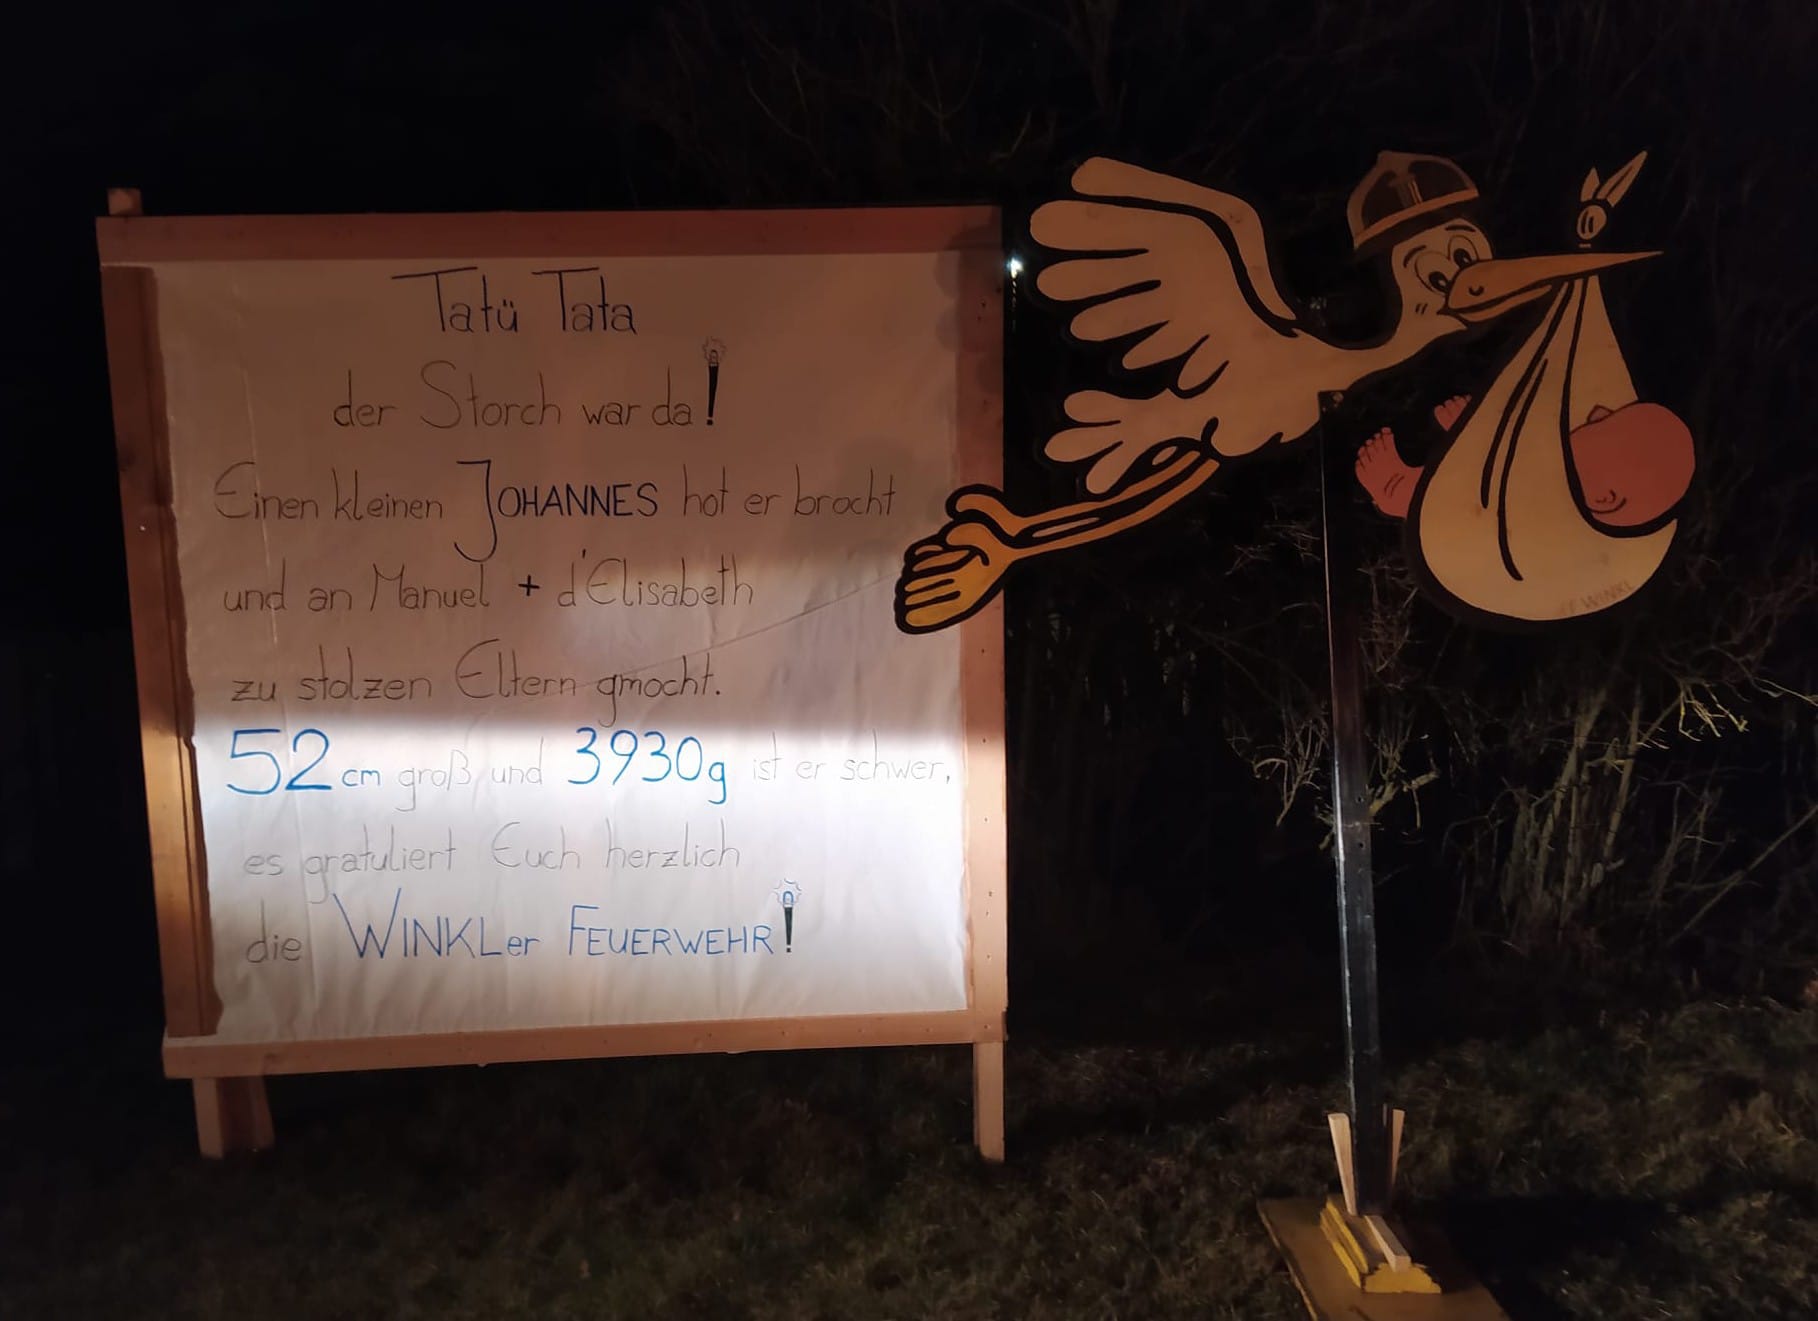 Tatü Tata
der Storch war da!
Einen kleinen JOHANNES hot er brocht
und an Manuel + d'Elisabeth
zu stolzen Eltern gmocht.
52 cm groß und 3930g ist er schwer,
es gratuliert Euch herzlich
die WINKLer FEUERWEHR!
WINKL